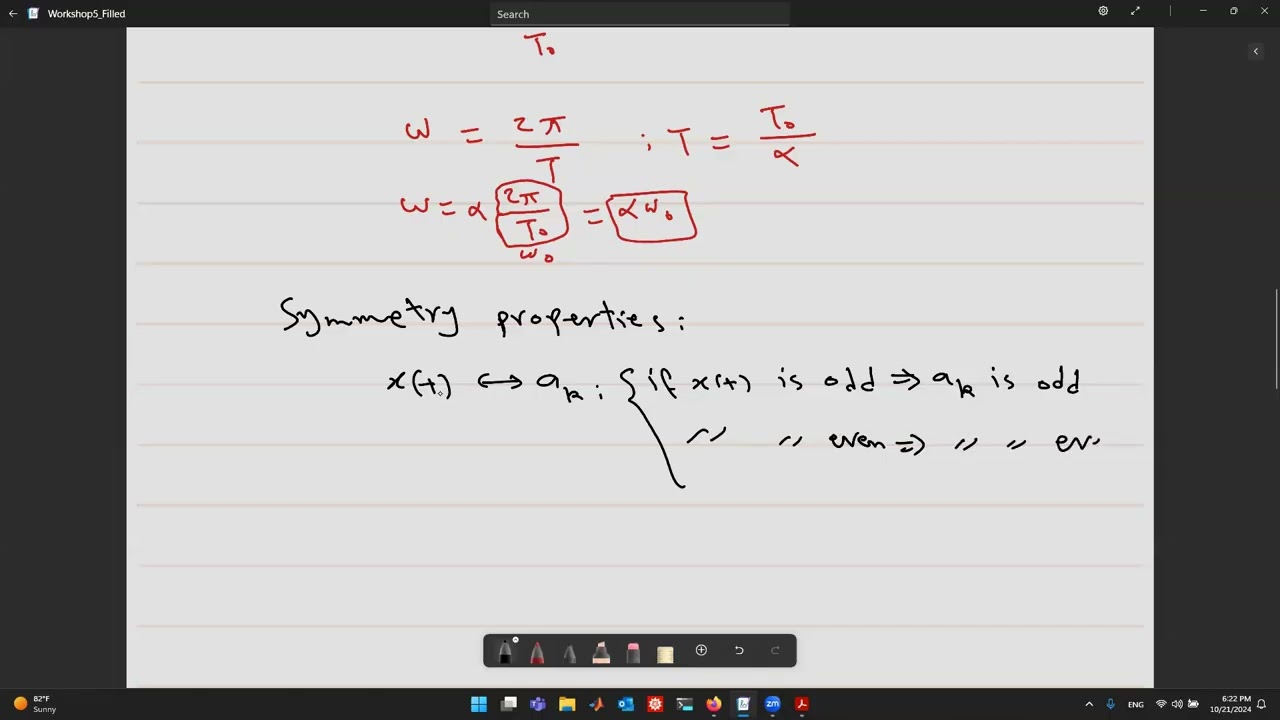 Workshop5_Filled
Search
T₀
ω = 2π / T ; T = T₀ / α
ω = α 2π / T₀ = α ω₀
ω₀
Symmetry properties:
x(t) ↔ aₖ ; { if x(t) is odd ⇒ aₖ is odd
〃 〃 even ⇒ 〃 〃 ev
82°F
Sunny
ENG
6:22 PM
10/21/2024